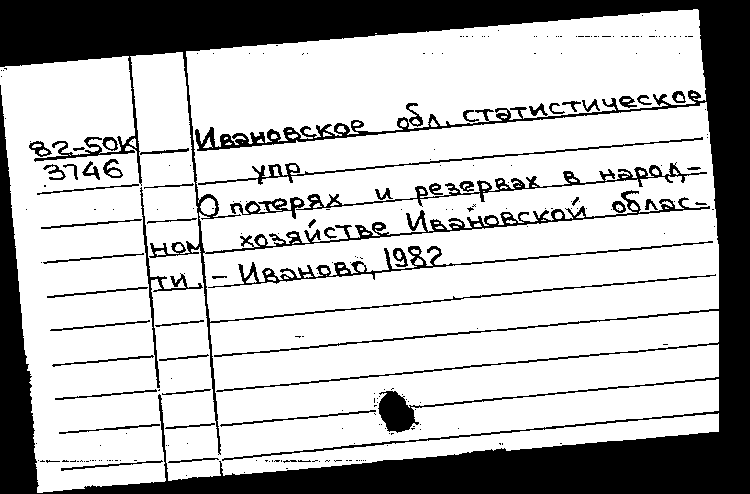 82-50К Ивановское обл. статистическое
3746 упр.
О потерях и резервах в народ-
ном хозяйстве Ивановской облас-
ти. - Иваново, 1982.